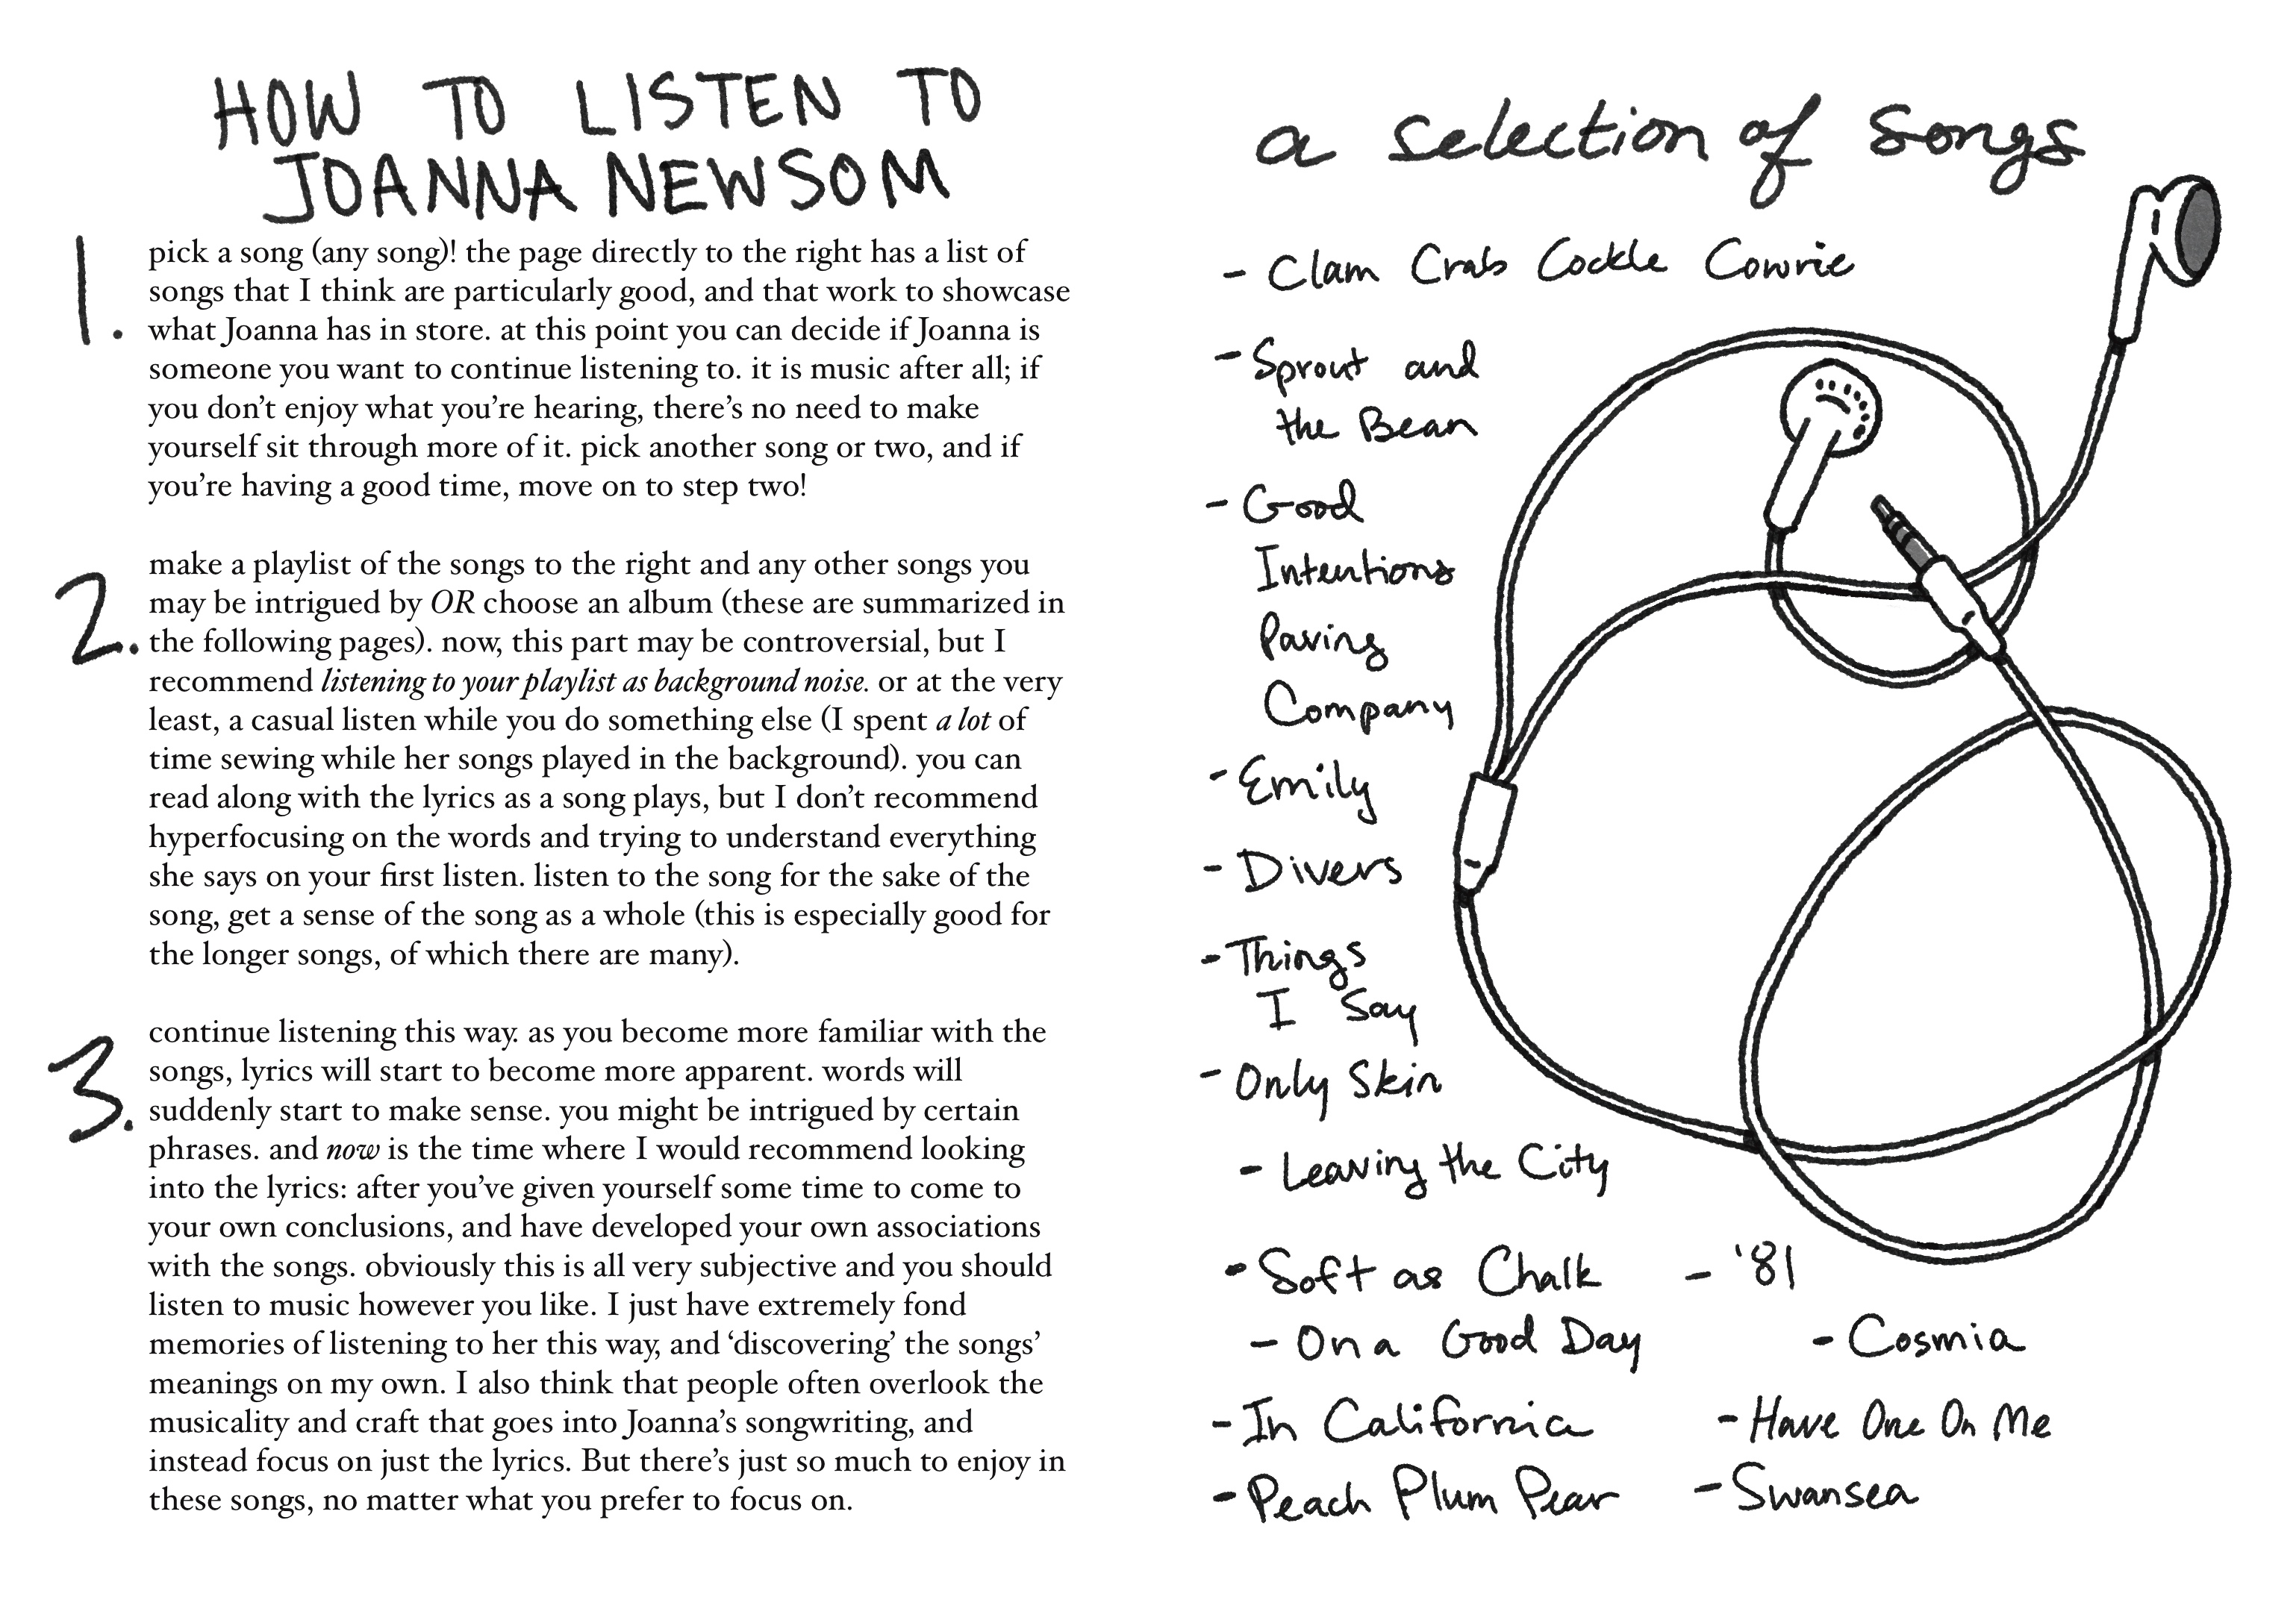 HOW TO LISTEN TO
JOANNA NEWSOM
1. pick a song (any song)! the page directly to the right has a list of
songs that I think are particularly good, and that work to showcase
what Joanna has in store. at this point you can decide if Joanna is
someone you want to continue listening to. it is music after all; if
you don’t enjoy what you’re hearing, there’s no need to make
yourself sit through more of it. pick another song or two, and if
you’re having a good time, move on to step two!
2. make a playlist of the songs to the right and any other songs you
may be intrigued by OR choose an album (these are summarized in
the following pages). now, this part may be controversial, but I
recommend listening to your playlist as background noise. or at the very
least, a casual listen while you do something else (I spent a lot of
time sewing while her songs played in the background). you can
read along with the lyrics as a song plays, but I don’t recommend
hyperfocusing on the words and trying to understand everything
she says on your first listen. listen to the song for the sake of the
song, get a sense of the song as a whole (this is especially good for
the longer songs, of which there are many).
3. continue listening this way. as you become more familiar with the
songs, lyrics will start to become more apparent. words will
suddenly start to make sense. you might be intrigued by certain
phrases. and now is the time where I would recommend looking
into the lyrics: after you’ve given yourself some time to come to
your own conclusions, and have developed your own associations
with the songs. obviously this is all very subjective and you should
listen to music however you like. I just have extremely fond
memories of listening to her this way, and ‘discovering’ the songs’
meanings on my own. I also think that people often overlook the
musicality and craft that goes into Joanna’s songwriting, and
instead focus on just the lyrics. But there’s just so much to enjoy in
these songs, no matter what you prefer to focus on.
a selection of songs
- Clam Crab Cockle Cowrie
- Sprout and
the Bean
- Good
Intentions
Paving
Company
- Emily
- Divers
- Things
I Say
- Only Skin
- Leaving the City
- Soft as Chalk
- '81
- On a Good Day
- Cosmia
- In California
- Have One On Me
- Peach Plum Pear
- Swansea